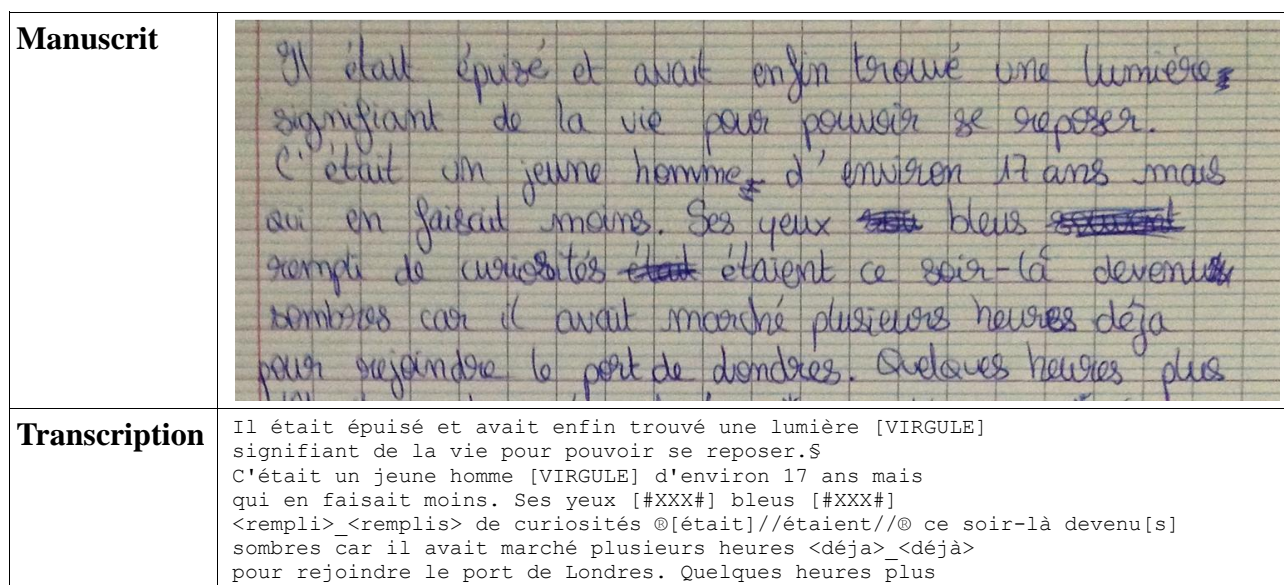 Manuscrit
Il était épuisé et avait enfin trouvé une lumière,
signifiant de la vie pour pouvoir se reposer.
C'était un jeune homme, d'environ 17 ans mais
qui en faisait moins. Ses yeux bleus
rempli de curiosités était étaient ce soir-là devenus
sombres car il avait marché plusieurs heures déja
pour rejoindre le port de Londres. Quelques heures plus
Transcription
Il était épuisé et avait enfin trouvé une lumière [VIRGULE]
signifiant de la vie pour pouvoir se reposer.§
C'était un jeune homme [VIRGULE] d'environ 17 ans mais
qui en faisait moins. Ses yeux [#XXX#] bleus [#XXX#]
<rempli>_<remplis> de curiosités ®[était]//étaient//® ce soir-là devenu[s]
sombres car il avait marché plusieurs heures <déja>_<déjà>
pour rejoindre le port de Londres. Quelques heures plus